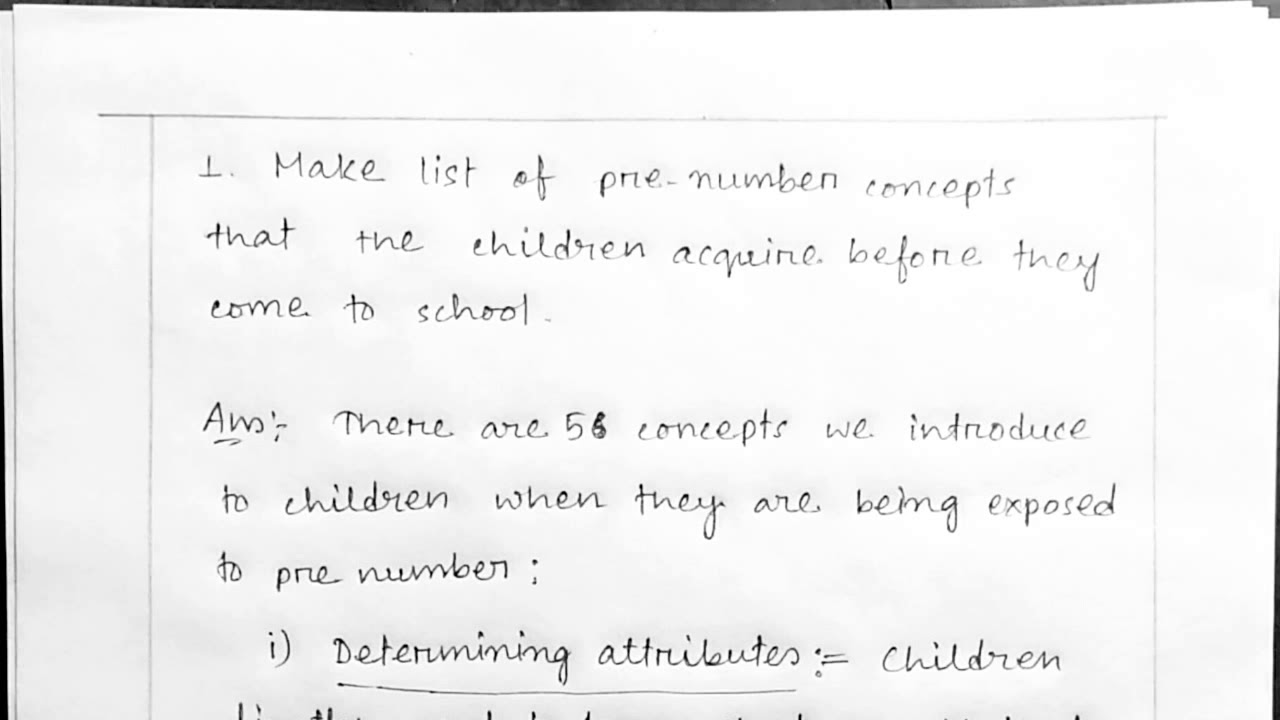 1. Make list of pre-number concepts
that the children acquire before they
come to school.
Ans:- There are 5 concepts we introduce
to children when they are being exposed
to pre number :
i) Determining attributes := Children